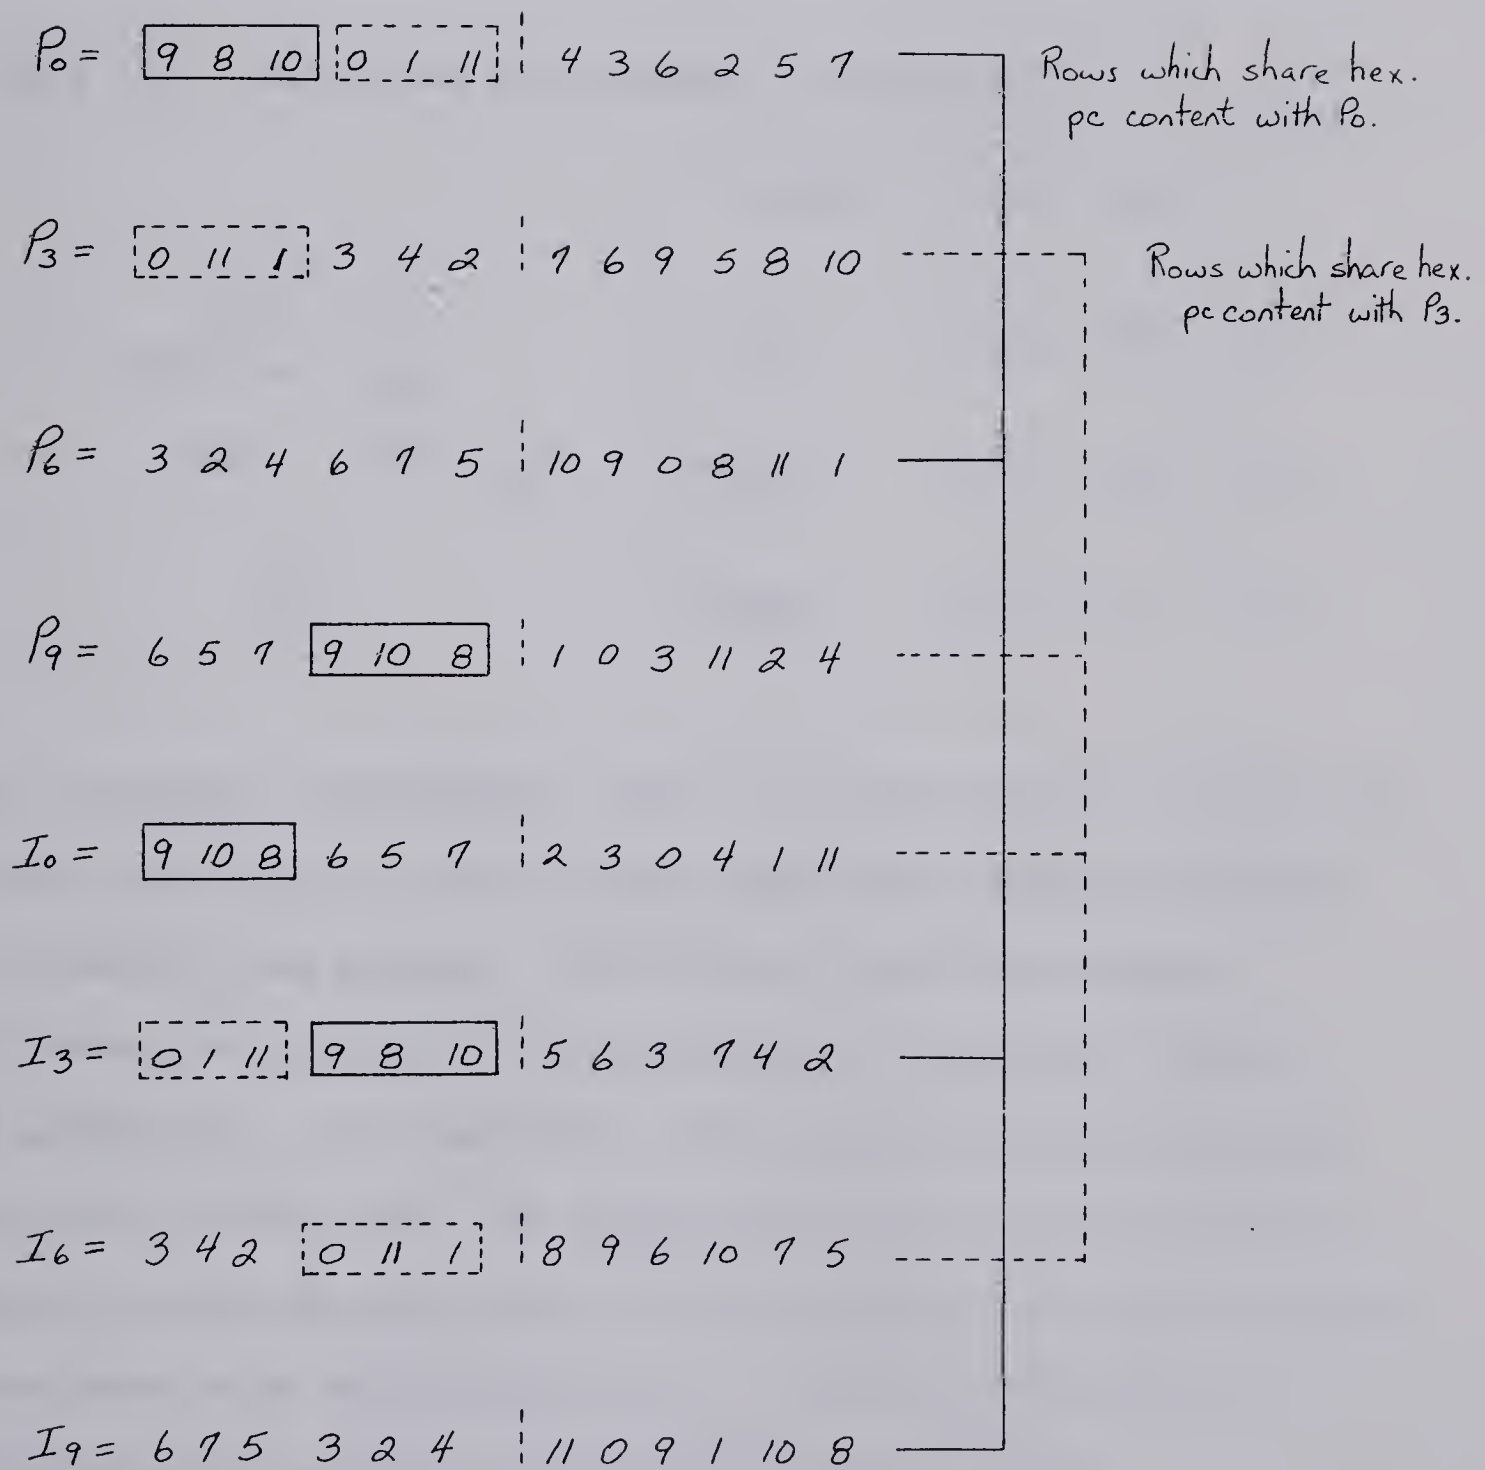 P0 = 9 8 10 0 1 11 4 3 6 2 5 7
Rows which share hex.
pc content with P0.
P3 = 0 11 1 3 4 2 7 6 9 5 8 10
Rows which share hex.
pc content with P3.
P6 = 3 2 4 6 7 5 10 9 0 8 11 1
P9 = 6 5 7 9 10 8 1 0 3 11 2 4
I0 = 9 10 8 6 5 7 2 3 0 4 1 11
I3 = 0 1 11 9 8 10 5 6 3 7 4 2
I6 = 3 4 2 0 11 1 8 9 6 10 7 5
I9 = 6 7 5 3 2 4 11 0 9 1 10 8